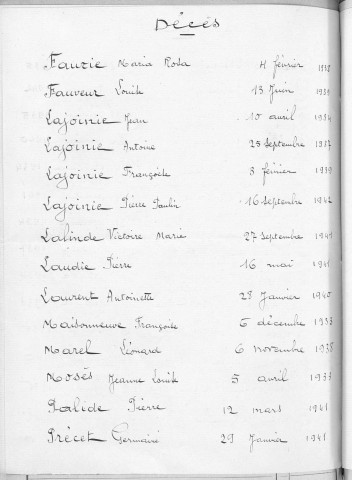 Décès
Faurie Maria Rosa 4 février 1938
Fauveur Louise 13 Juin 1939
Lajoinie Jean 10 avril 1934
Lajoinie Antoine 25 Septembre 1937
Lajoinie Françoise 8 février 1939
Lajoinie Pierre Paulin 16 Septembre 1942
Lalinde Victoire Marie 27 Septembre 1941
Laudie Pierre 16 mai 1941
Laurent Antoinette 28 Janvier 1940
Maisonneuve Françoise 6 décembre 1933
Marel Léonard 6 novembre 1938
Mosès Jeanne Louise 5 avril 1933
Palide Pierre 12 mars 1941
Précet Germaine 29 Janvier 1941